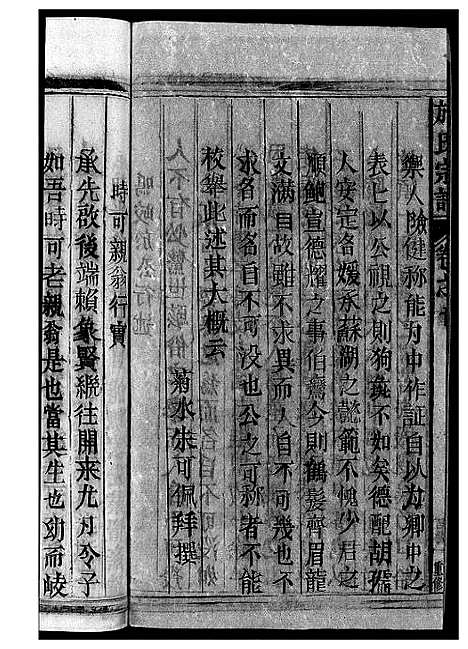 於氏宗譜
卷之首
重修
禦人險健称能為中作証自以為鄉中之
表七以公視之則狗彘不如矣德配胡孺
人安定名媛承蘇湖之懿範不愧少君之
順鮑宣德耀之事伯鸞今則鶴髮齊眉龍
文滿目故雖不求異而人自不可幾也不
求名而名自不可没也公之可称者不能
枚舉此述其大概云
菊水朱可佩拜撰
時可親翁行實
承先啟後端頼象賢繼往開来尤月令子
如吾時可老親翁是也當其生也幼而岐